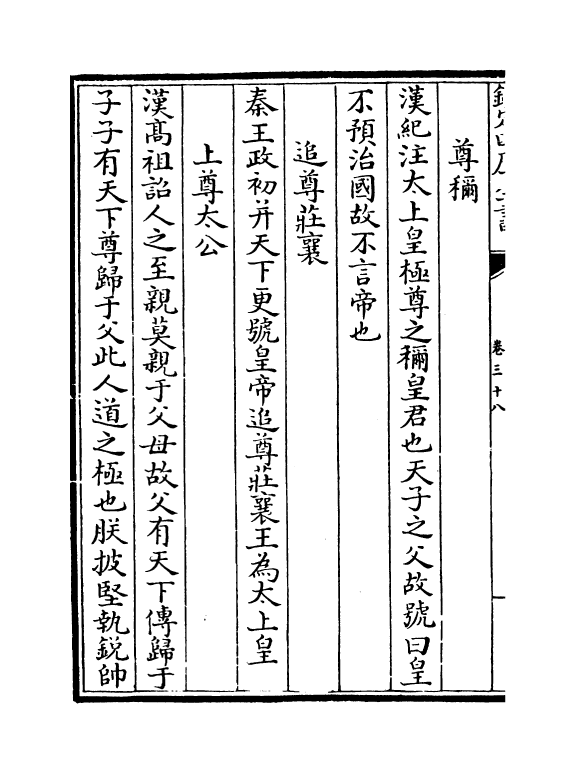 尊稱
漢紀注太上皇極尊之稱皇君也天子之父故號曰皇
不預治國故不言帝也
追尊莊襄
秦王政初并天下更號皇帝追尊莊襄王為太上皇
上尊太公
漢髙祖詔人之至親莫親于父母故父有天下傳歸于
子子有天下尊歸于父此人道之極也朕披堅執鋭帥
卷三十八